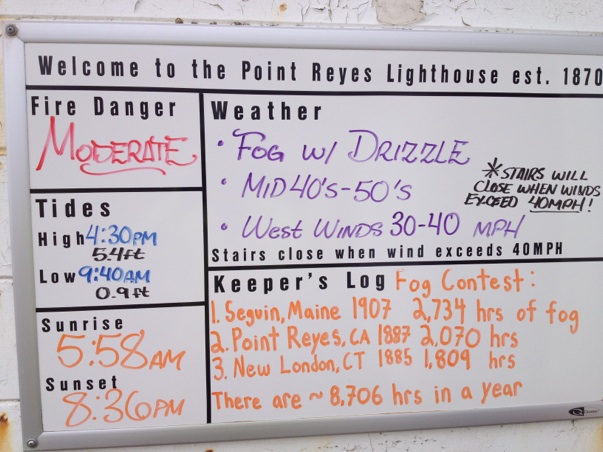 Welcome to the Point Reyes Lighthouse est. 1870
Fire Danger
MODERATE
Tides
High 4:30PM
5.4ft
Low 9:40AM
0.9 ft
Sunrise
5:58AM
Sunset
8:36PM
Weather
• FOG W/ DRIZZLE
• MID 40'S-50'S
• WEST WINDS 30-40 MPH
*STAIRS WILL
CLOSE WHEN WINDS
EXCEED 40MPH!
Stairs close when wind exceeds 40MPH
Keeper's Log Fog Contest:
1. Seguin, Maine 1907 2,734 hrs of fog
2. Point Reyes, CA 1887 2,070 hrs
3. New London, CT 1885 1,809 hrs
There are ~ 8,706 hrs in a year